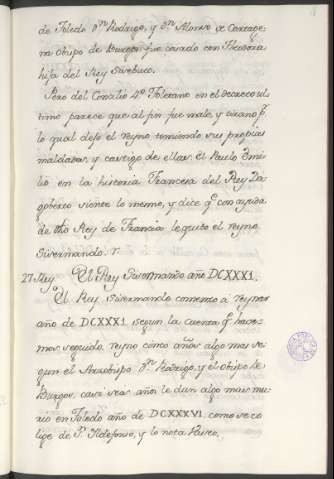 de Toledo Dⁿ Rodrigo, y Dⁿ Alonso de Cartage
na Obispo de Burgos fue casado con Theodora
hija del Rey Sisebuto.
Pero del Concilio 4º Toletano en el decreto ul
timo parece que al fin fue malo, y tirano pʳ
lo qual dejo el reyno temiendo sus propias
maldades, y castigo de ellas. El Paulo Emi
lio en la historia Francesa del Rey Da
goberto siente lo mesmo, y dice qᵉ con ayuda
de dho Rey de Francia le quito el reyno
Sisenando.
27 Rey. El Rey Sisenando año DCXXXI.
El Rey Sisenando comenzo á reynar
año de DCXXXI segun la cuenta qᵉ hace
mos seguido, reyno cinco años algo mas se
gun el Arzobispo Dⁿ Rodrigo, y el obispo de
Burgos, casi seis años le dan algo mas mu
rio en Toledo año de DCXXXVI, como se co
lige de Sⁿ Ildefonso, y lo nota Vaseo.